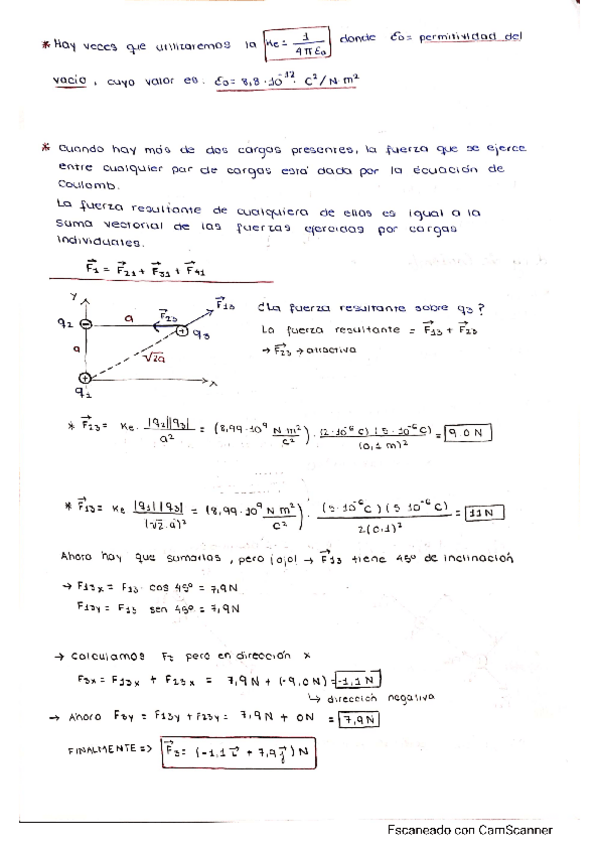 * Hay veces que utilizaremos la Ke = 1/(4πεo) donde εo = permitividad del
vacío, cuyo valor es: εo = 8,8·10^-12 C²/N·m²
* Cuando hay más de dos cargas presentes, la fuerza que se ejerce
entre cualquier par de cargas está dada por la ecuación de
Coulomb.
La fuerza resultante de cualquiera de ellos es igual a la
suma vectorial de las fuerzas ejercidas por cargas
individuales.
F⃗1 = F⃗21 + F⃗31 + F⃗41
y
F⃗13
q2
a
F⃗23
q3
a
√2a
q1
x
¿La fuerza resultante sobre q3?
La fuerza resultante = F⃗13 + F⃗23
→ F⃗23 → atractiva
* F⃗23 = Ke · |q2||q3|/a² = (8,99·10⁹ N m²/C²) · (2·10^-6 C)(5·10^-6 C)/(0,1 m)² = 9,0 N
* F⃗13 = Ke |q1||q3|/(√2·a)² = (8,99·10⁹ N m²/C²) · (5·10^-6 C)(5·10^-6 C)/2(0,1)² = 11 N
Ahora hay que sumarlas, pero ¡ojo! → F⃗13 tiene 45º de inclinación
→ F13x = F13 · cos 45º = 7,9 N
F13y = F13 sen 45º = 7,9 N
→ Calculamos pero en dirección x
F3x = F13x + F23x = 7,9 N + (-9,0 N) = -1,1 N
↳ dirección negativa
→ Ahora F3y = F13y + F23y = 7,9 N + 0N = 7,9 N
FINALMENTE => F⃗3 = (-1,1 i⃗ + 7,9 j⃗) N
Escaneado con CamScanner